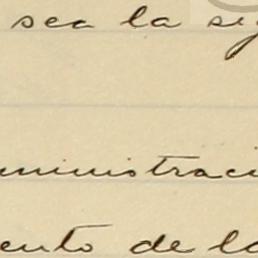 sea la sig
ministraci
ento de la